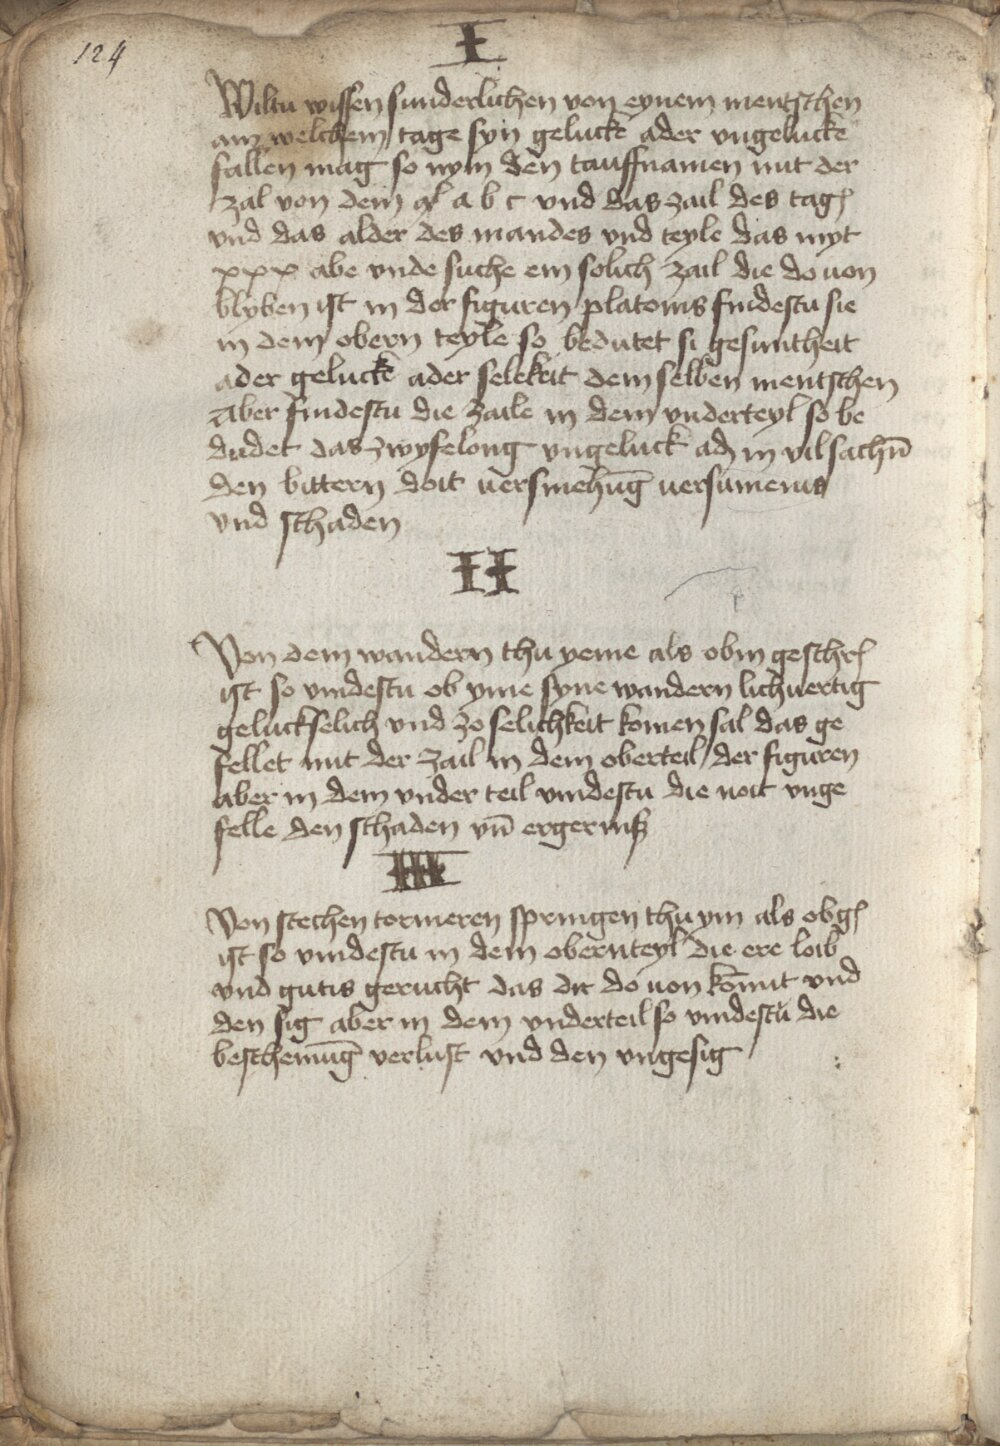 124
I
Wiltu wissen sunderlichen von eynem mentschen
an welchem tage syn gelucke ader vngelucke
fallen mag so nym den tauffnamen mit der
zal von dem a b c vnd das zail des tag
vnd das alder des mandes vnd teyle das myt
xxx abe vnde suche ein solich zail die do von
blyben ist in der figuren platonis findestu sie
in dem obern teyle so bedutet si gesuntheit
ader gelucke ader selekeit dem selben mentschen
Aber findestu die zaile in dem vnderteyl so be
dudet das zwyfelong vngeluck ad in vil sachn̄
den bittern doit uersmehūg uersumenis
vnd schaden
II
Von dem wandern thu yeme als obin geschr
ist so vindestu ob yme syne wandern lichuertig
geluckselich vnd zo selichkeit komen sal das ge
fellet mit der zail in dem oberteil der figuren
aber in dem vnder teil vindestu die noit vnge
felle den schaden vn̄ ergerniß
III
Von stechen tornieren springen thu ym als obg
ist so vindestu in dem obernteyl die ere loib
vnd gutis gerucht das dir do uon kōmit vnd
den sig aber in dem vnderteil so vindestu die
beschemūg verlust vnd den vngesig